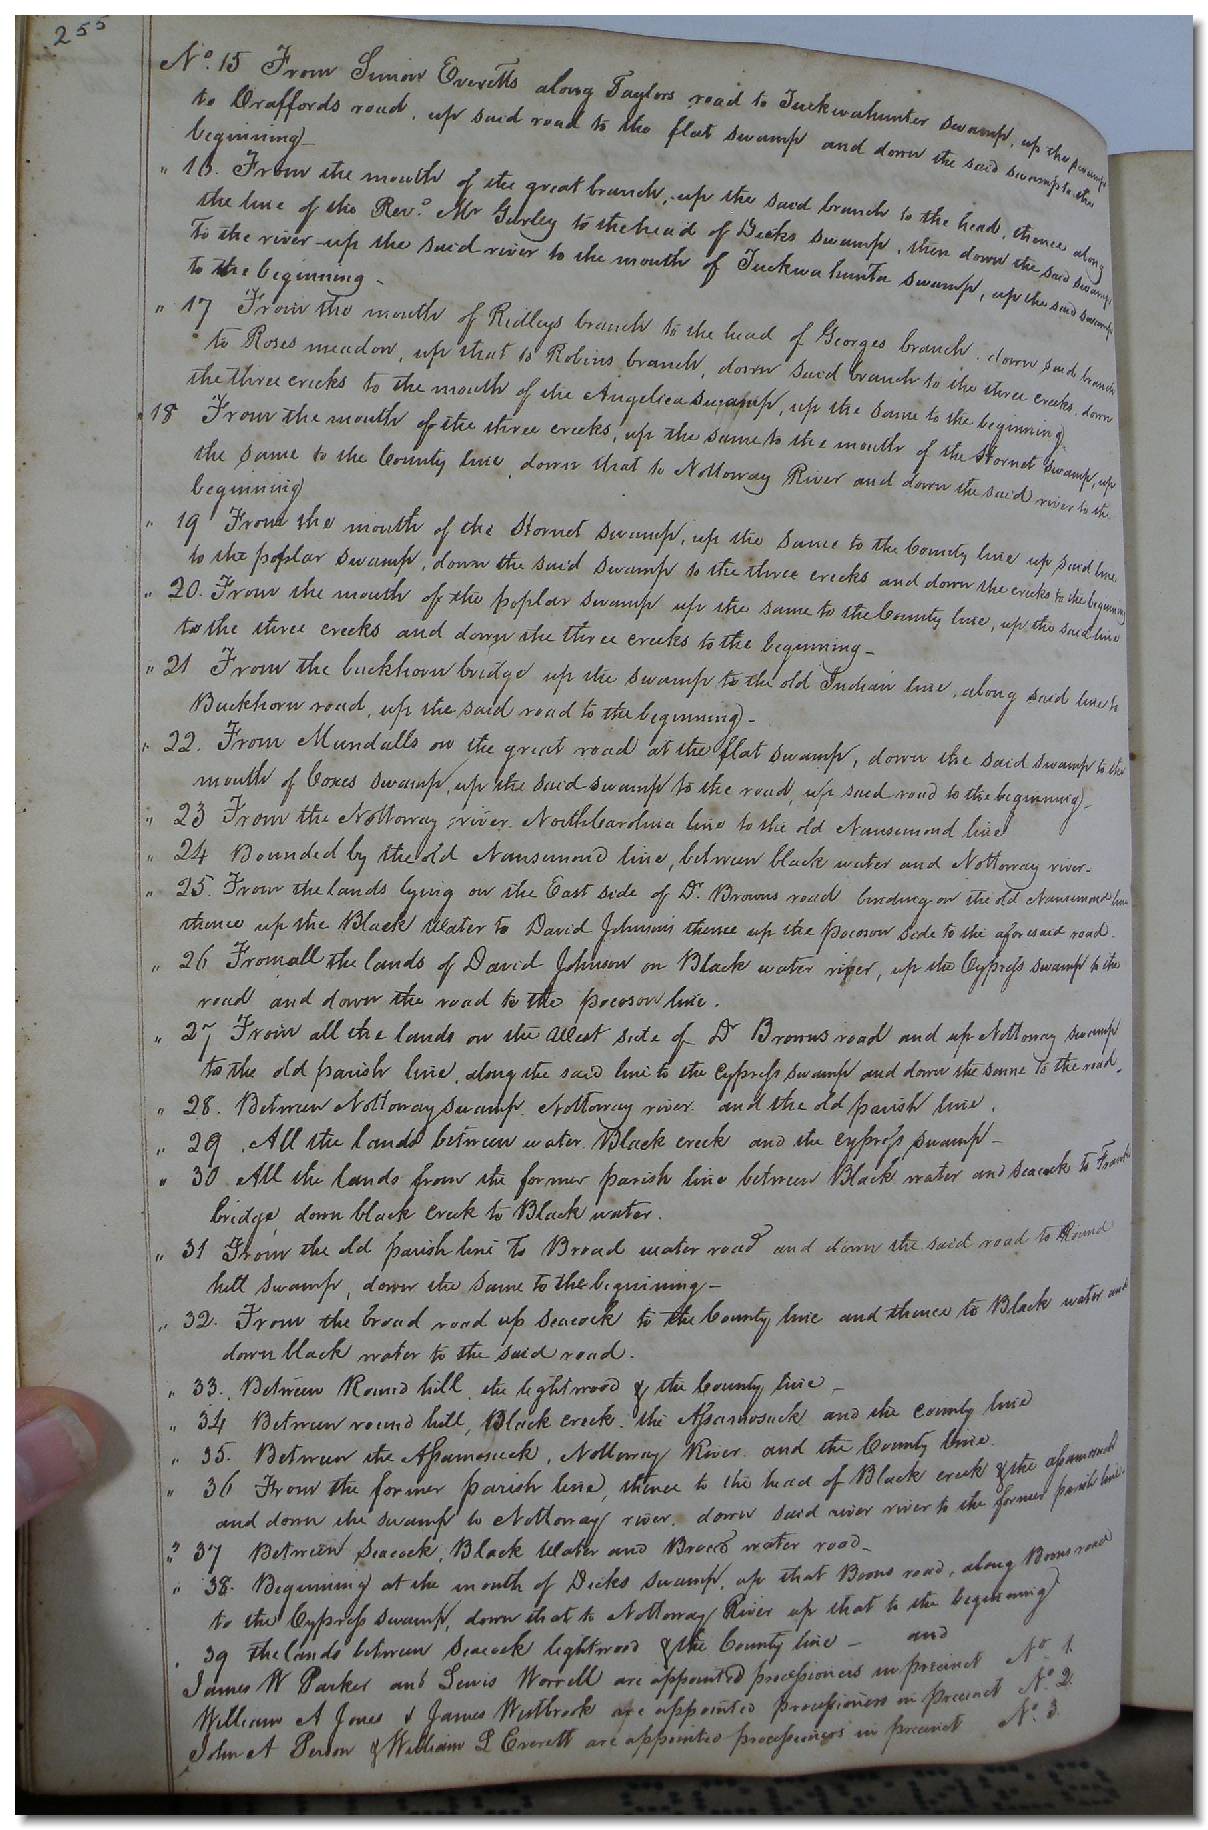 255
No. 15 From Simon Everetts along Taylors road to Tuckwahunter swamp, up the swamp
to Draffords road, up said road to the flat swamp and down the said swamp to the
beginning
" 16. From the mouth of the great branch, up the said branch to the head, thence along
the line of the Revd. Mr Gurley to the head of Decks swamp, then down the said swamp
To the river up the said river to the mouth of Tuckwahunta swamp, up the said swamp
to the beginning.
" 17 From the mouth of Ridleys branch to the head of Georges branch, down said branch
to Roses meadow, up that to Robins branch, down said branch to the three creeks, down
the three creeks to the mouth of the Angelica swamp, up the same to the beginning
" 18 From the mouth of the three creeks, up the same to the mouth of the Hornet swamp, up
the same to the County line, down that to Nottoway River and down the said river to the
beginning
" 19 From the mouth of the Hornet swamp, up the same to the County line up said line
to the poplar swamp, down the said swamp to the three creeks and down the creeks to the beginning
" 20. From the mouth of the poplar swamp up the same to the County line, up the said line
to the three creeks and down the three creeks to the beginning -
" 21 From the buckhorn bridge up the swamp to the old Indian line, along said line to
Buckhorn road, up the said road to the beginning -
" 22. From Mundalls on the great road at the flat swamp, down the said swamp to the
mouth of Coxes swamp, up the said swamp to the road, up said road to the beginning -
" 23 From the Nottoway river North Carolina line to the old Nansemond line
" 24 Bounded by the old Nansemond line, between black water and Nottoway river -
" 25. From the lands lying on the East side of Dr. Browns road binding on the old Nansemond line
thence up the Black Water to David Johnsons thence up the pocoson side to the aforesaid road.
" 26 From all the lands of David Johnson on Black water river, up the Cypress swamp to the
road and down the road to the pocoson line.
" 27 From all the lands on the West side of Dr Browns road and up Nottoway swamp
to the old parish line, along the said line to the cypress swamp and down the same to the road.
" 28. Between Nottoway swamp Nottoway river and the old parish line.
" 29. All the lands between water Black creek and the cypress swamp -
" 30 All the lands from the former parish line between Black water and Seacock to
bridge down black creek to Black water.
" 31 From the old parish line to Broad water road and down the said road to Round
hill swamp, down the same to the beginning -
" 32. From the broad road up Seacock to the County line and thence to Black water and
down black water to the said road.
" 33. Between Round hill the lightwood & the County line -
" 34 Between round hill, Black creek the Assamosuck and the county line
" 35. Between the Assamosuck, Nottoway River and the County line.
" 36 From the former parish line, thence to the head of Black creek & the assamosuck
and down the swamp to Nottoway river. down said river river to the former parish line.
" 37 Between Seacock, Black Water and Broad water road -
" 38. Beginning at the mouth of Decks swamp, up that Boons road, along Boons road
to the Cypress swamp, down that to Nottoway River up that to the beginning
" 39 the lands between Seacock lightwood & the County line - and
James W Parker and Lewis Worrell are appointed processioners in precinct No 1.
William A Jones & James Westbrook are appointed processioners in precinct No. 2.
John A Person & William L Everett are appointed processioners in precinct No. 3.